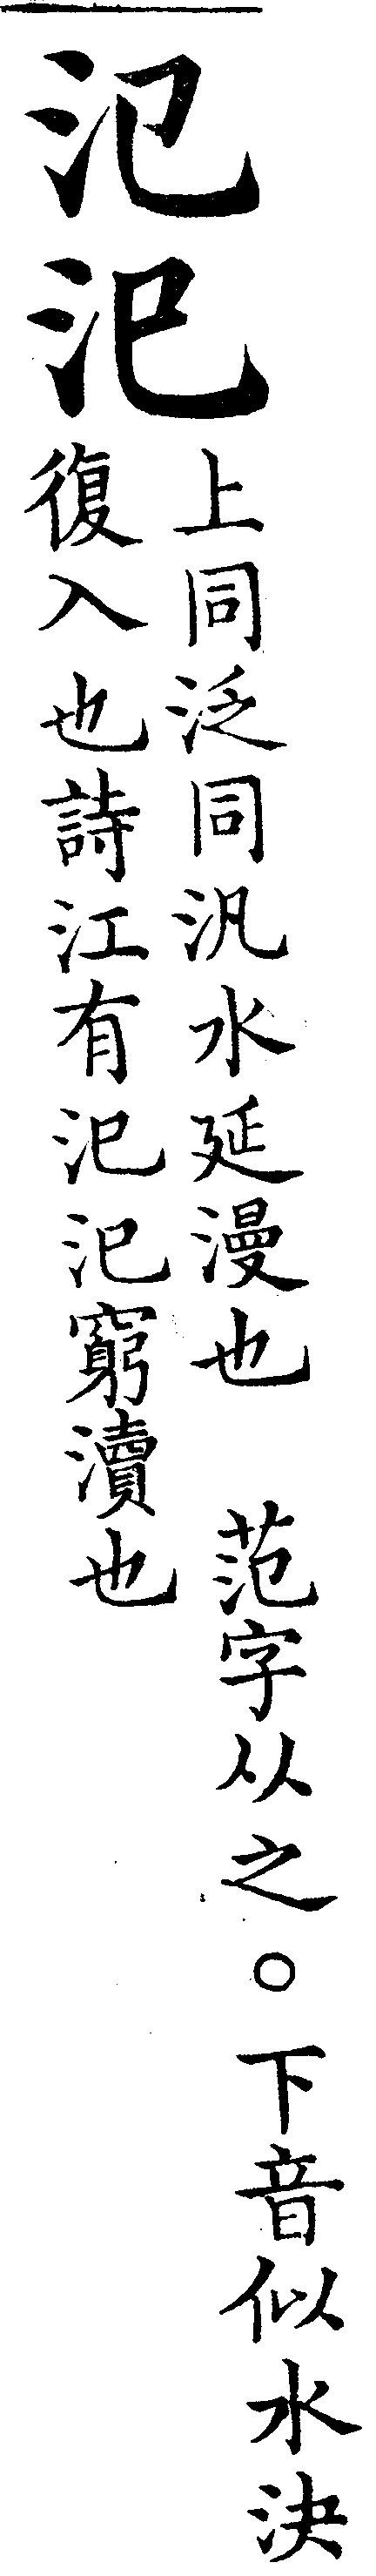 氾汜
上同泛同汎水延漫也　范字从之。下音似水決
復入也詩江有汜汜窮瀆也